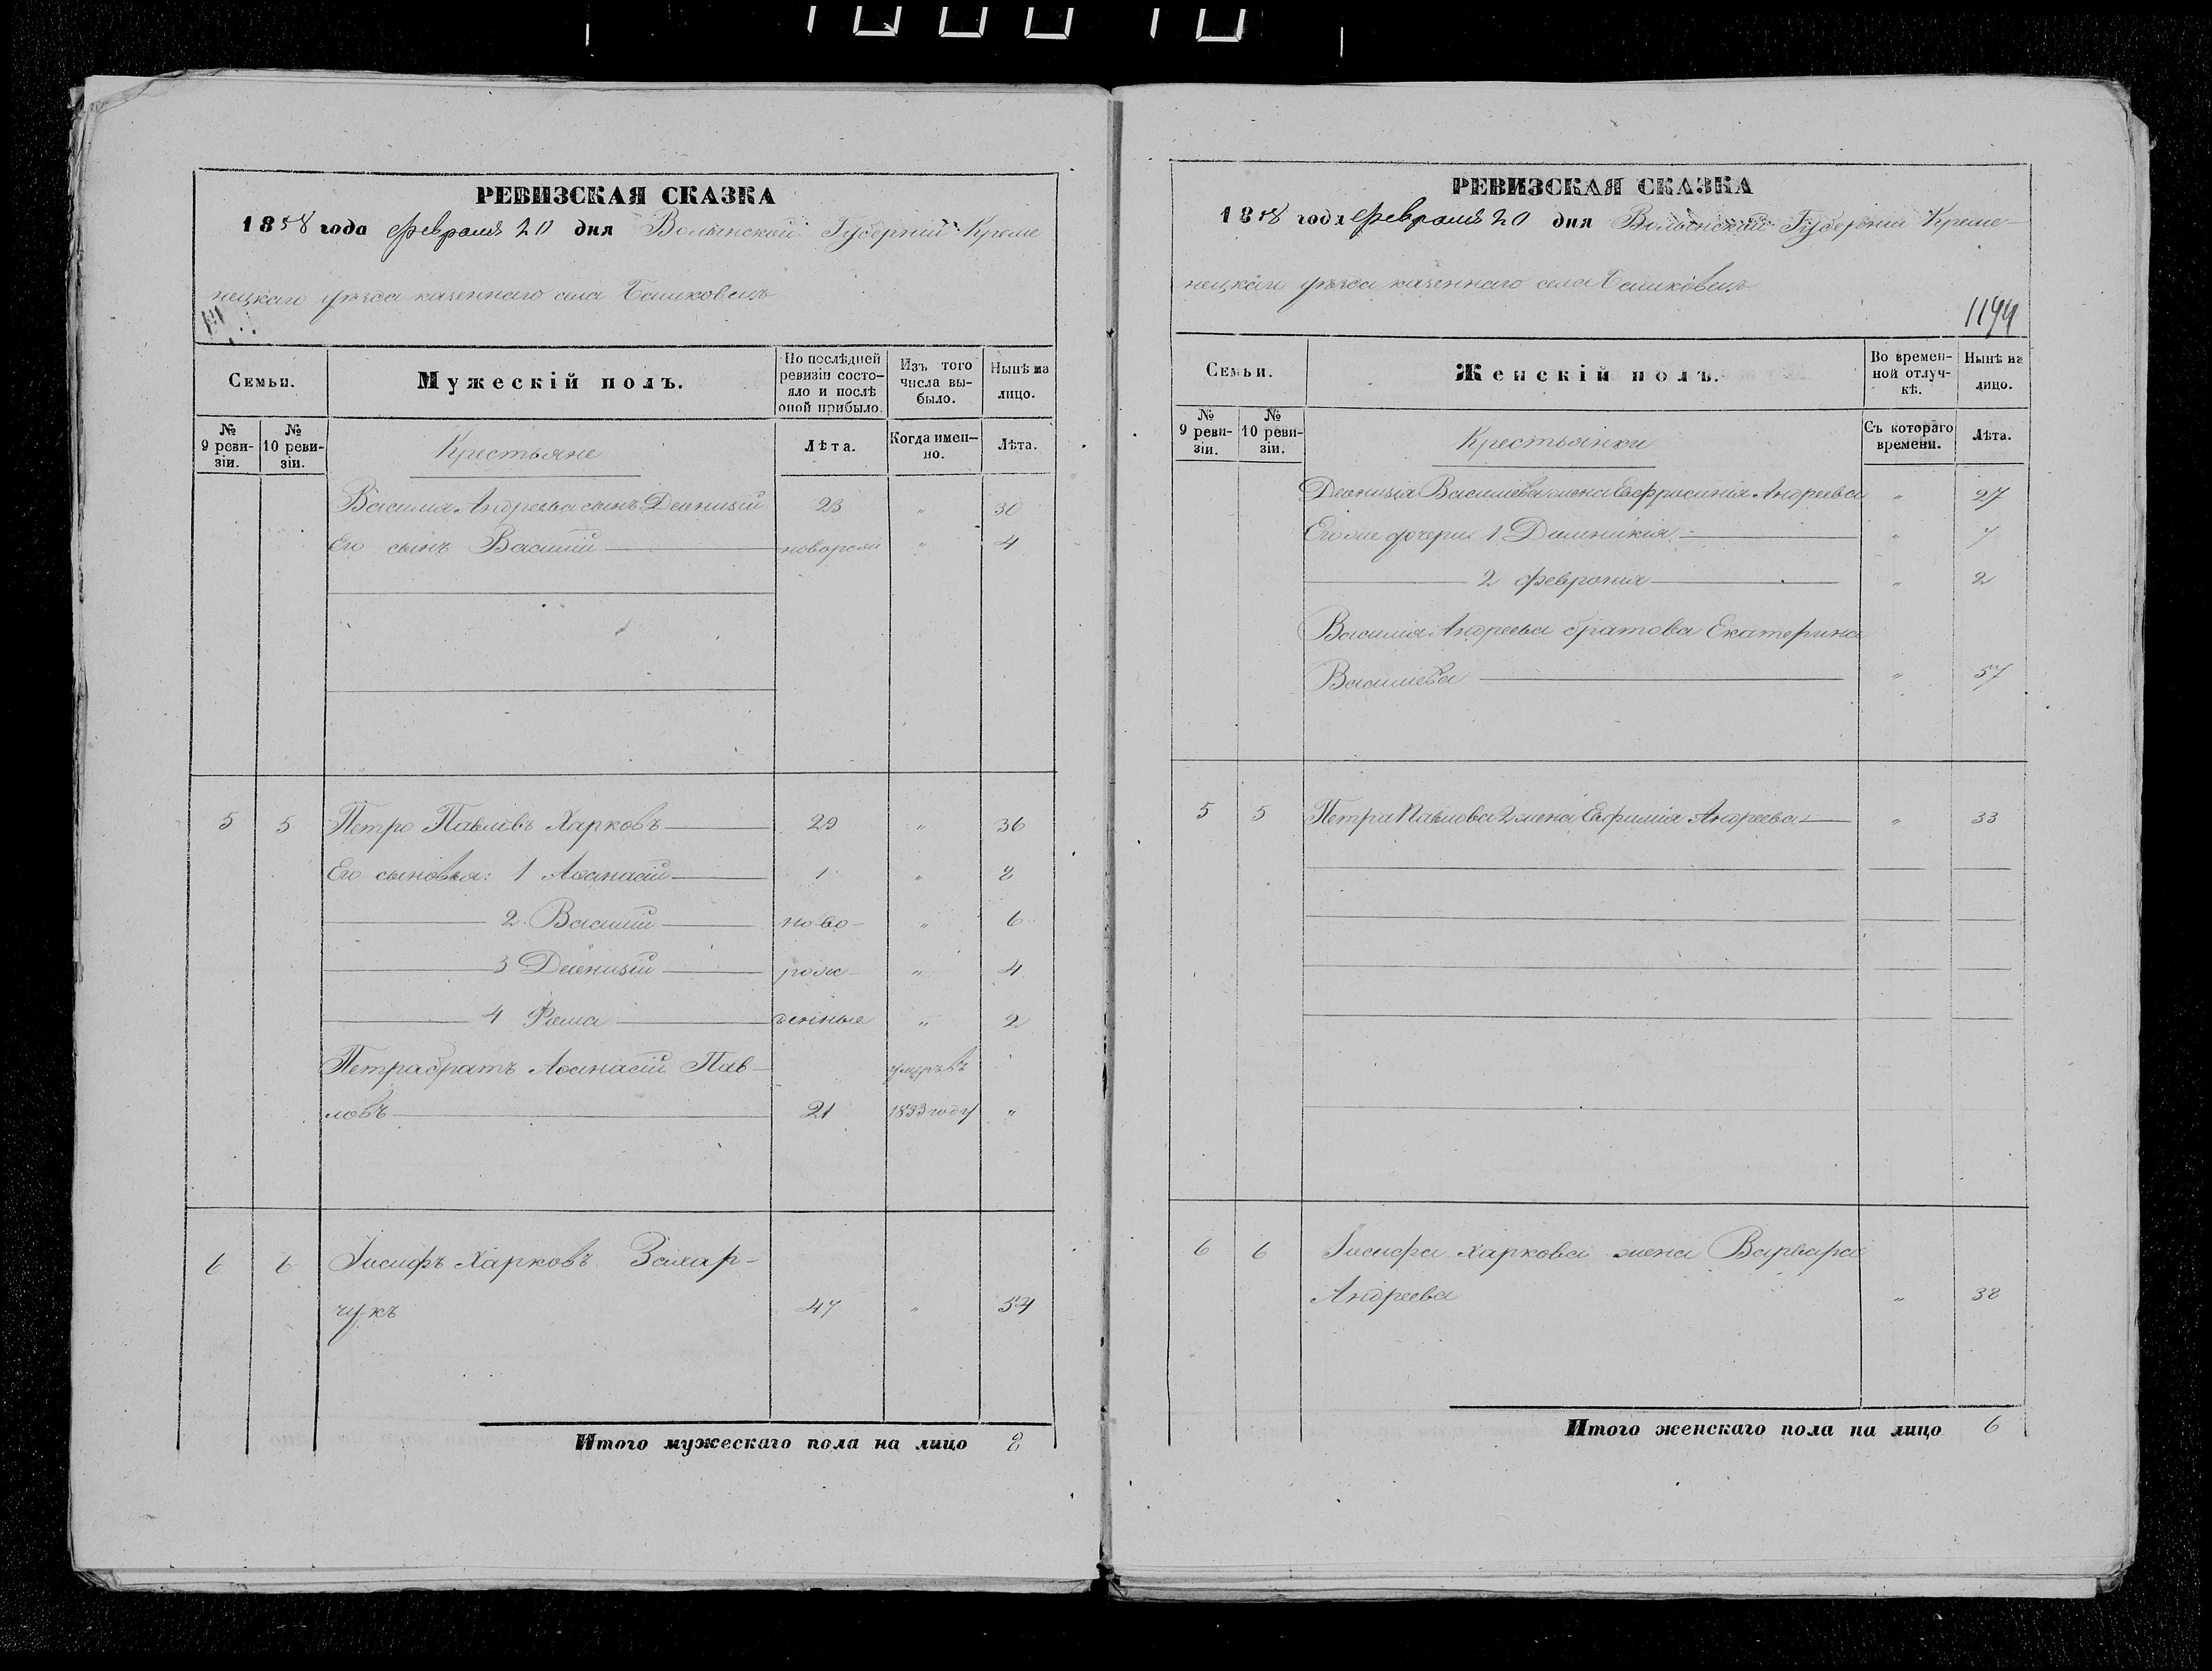 РЕВИЗСКАЯ СКАЗКА
1858 года Февраля 20 дня Волынской Губерніи Креме
нецкаго уѣзда казеннаго села Башковецъ
Семьи.
Мужескій полъ.
По послѣдней ревизіи состояло и послѣ оной прибыло.
Изъ того числа выбыло.
Нынѣ на лицо.
№ 9 ревизіи.
№ 10 ревизіи.
Крестьяне
Лѣта.
Когда именно.
Лѣта.
Василія Андреева сынъ Деонизій 23 " 30
Его сынъ Василій новорож " 4
5 5 Петро Павловъ Харковъ 29 " 36
Его сыновья: 1 Аѳанасій 1 " 8
2 Василій ново- " 6
3 Деонизій рож- " 4
4 Рома денные " 2
Петра братъ Аѳанасій Пав- умеръ въ
ловъ 21 1853 году "
6 6 Іосифъ Харковъ Захар-
чукъ 47 " 54
Итого мужескаго пола на лицо 8
РЕВИЗСКАЯ СКАЗКА
1858 года Февраля 20 дня Волынской Губерніи Креме-
нецкаго уѣзда казеннаго села Башковецъ
1194
Семьи.
Женскій полъ.
Во временной отлучкѣ.
Нынѣ на лицо.
№ 9 ревизіи.
№ 10 ревизіи.
Крестьянки
Съ котораго времени.
Лѣта.
Деонизія Васильева жена Евфросинія Андреева " 27
Его же дочери 1 Домникія " 7
2 Февронія " 2
Василія Андреева братова Екатерина
Васильева " 57
5 5 Петра Павлова 2 жена Евфимія Андреева " 33
6 6 Іосифа Харкова жена Варвара
Андреева " 38
Итого женскаго пола на лицо 6